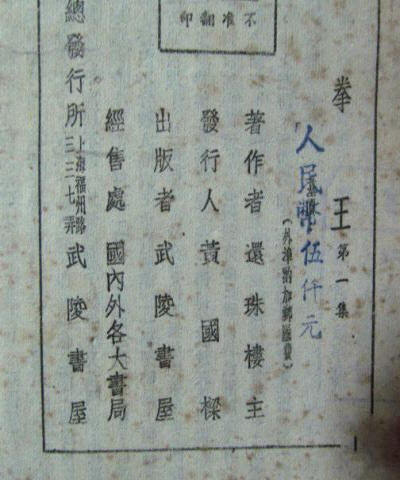 不准翻印
拳王 第一集
人民幣伍仟元
(外埠酌加郵匯費)
著作者 還珠樓主
發行人 黃國樑
出版者 武陵書屋
經售處 國內外各大書局
總發行所 上海福州路三三七弄 武陵書屋